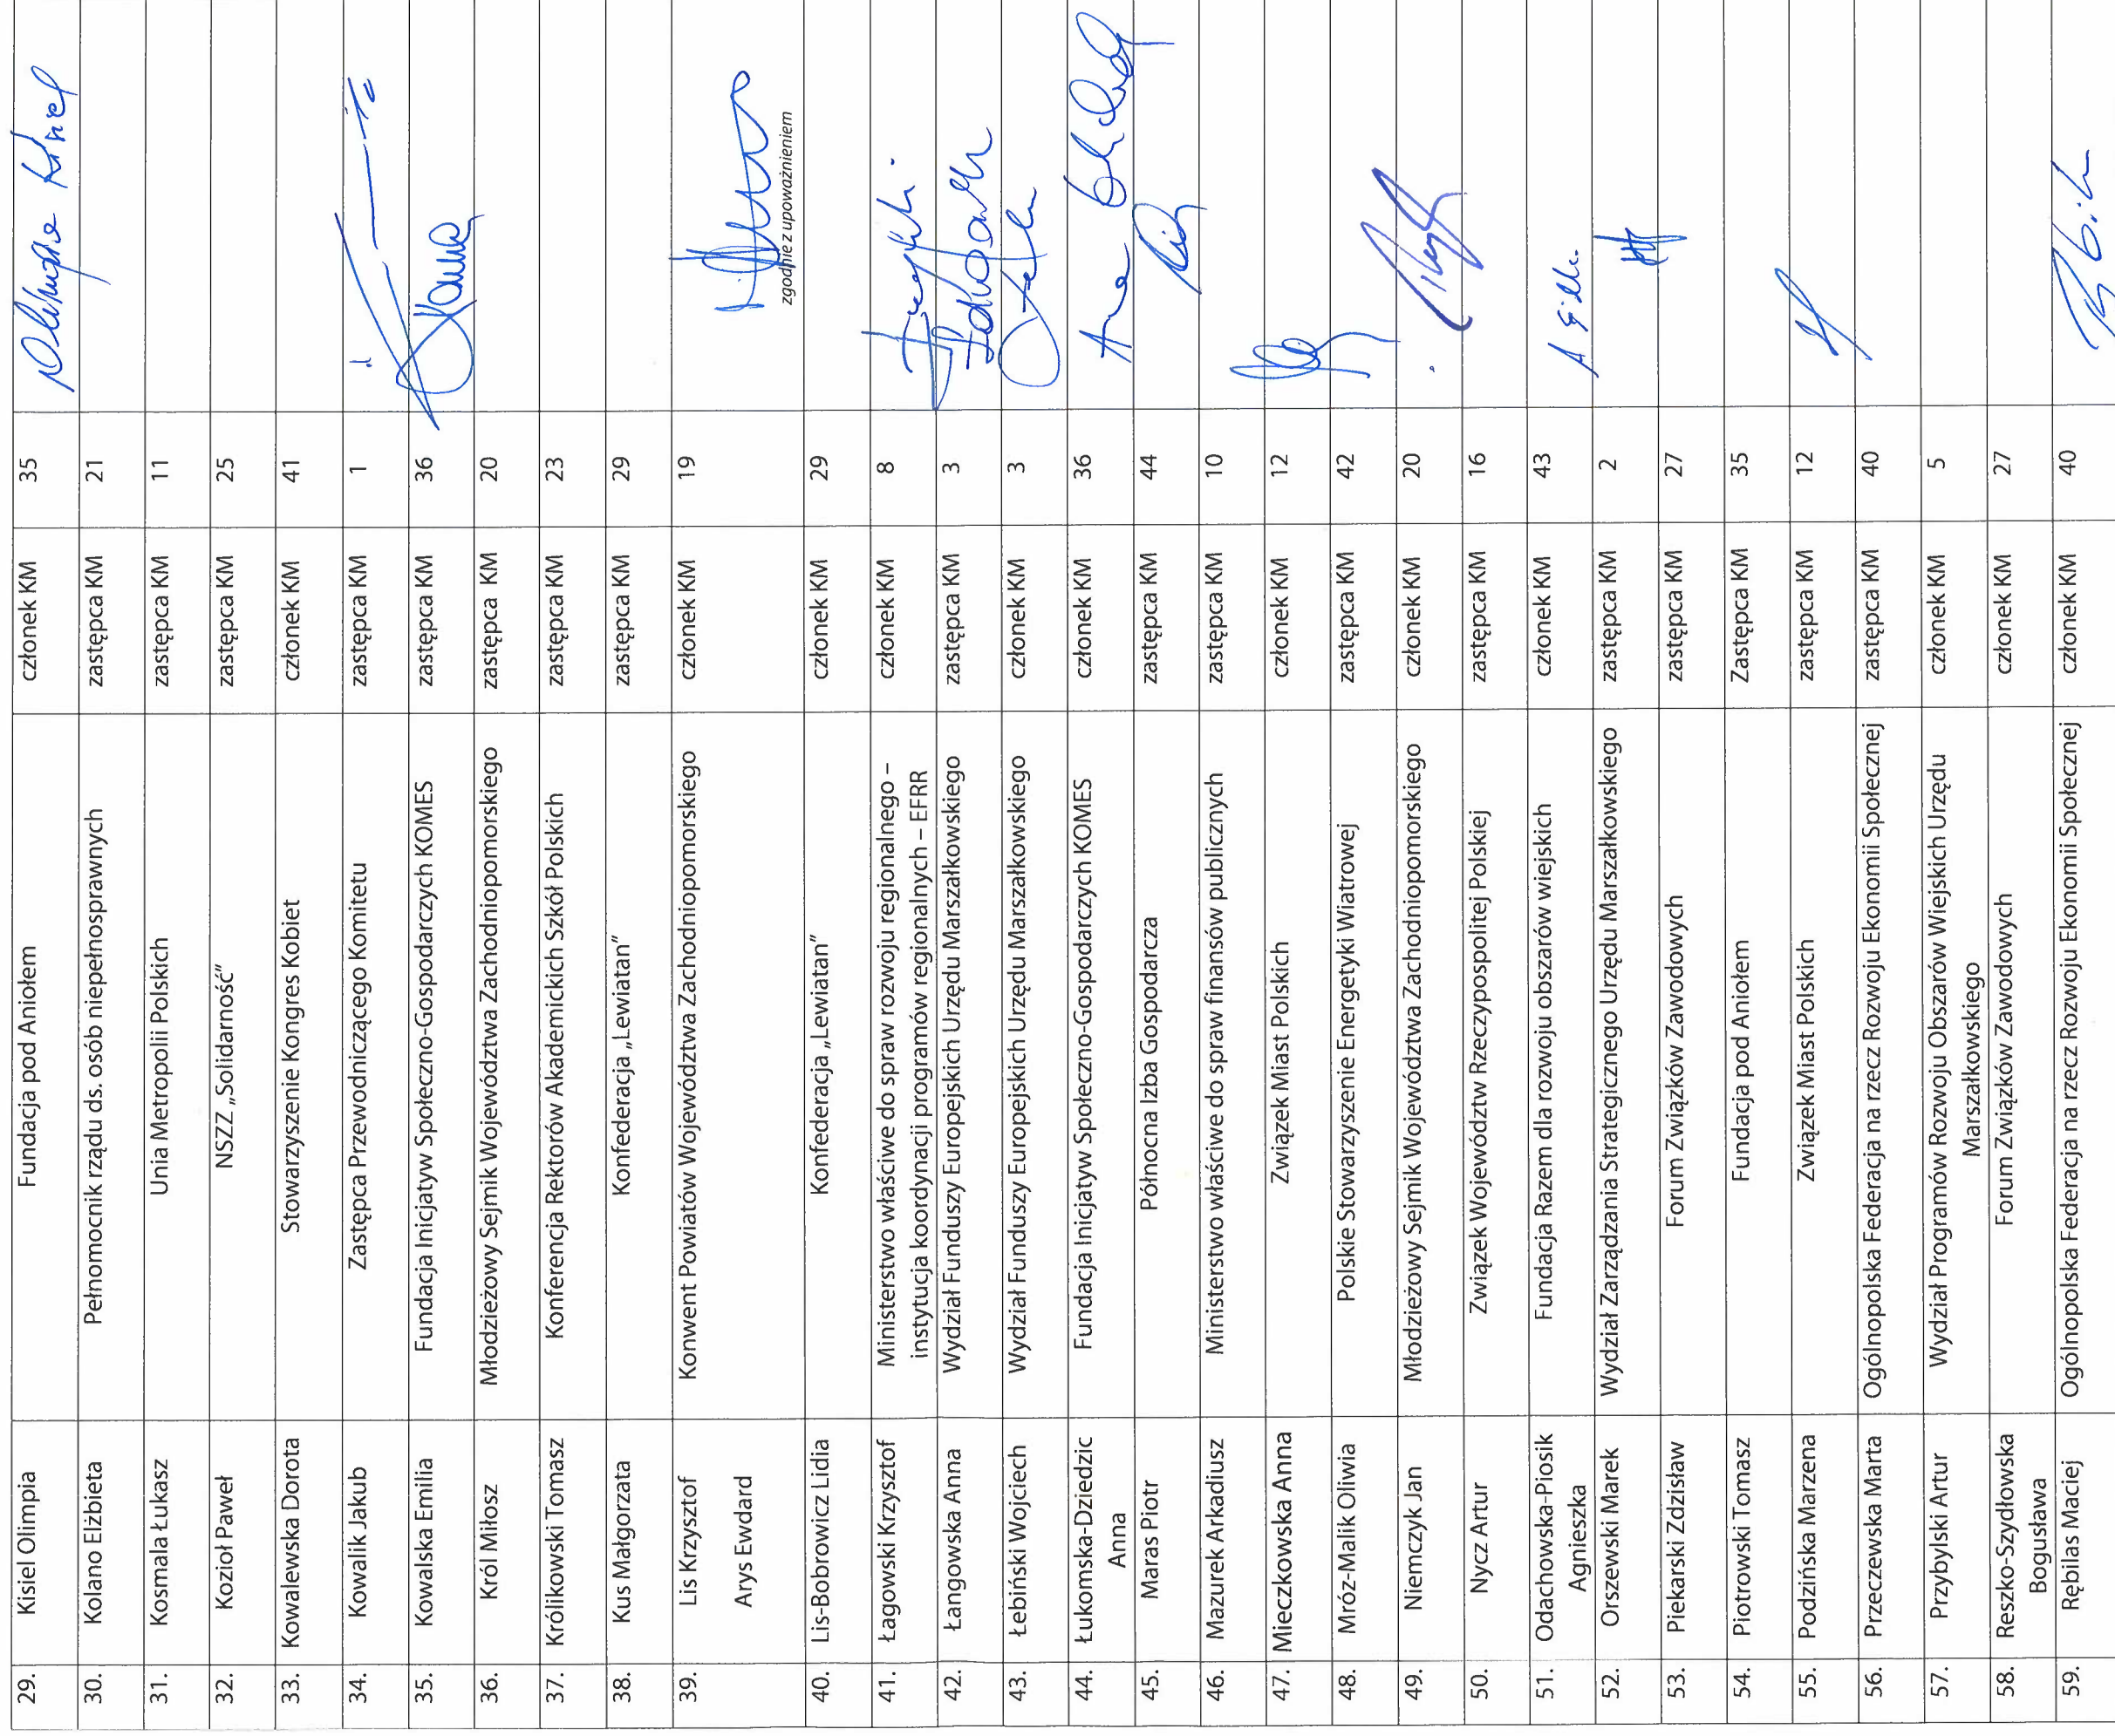 29. Kisiel Olimpia Fundacja pod Aniołem członek KM 35
30. Kolano Elżbieta Pełnomocnik rządu ds. osób niepełnosprawnych zastępca KM 21
31. Kosmala Łukasz Unia Metropolii Polskich zastępca KM 11
32. Kozioł Paweł NSZZ „Solidarność” zastępca KM 25
33. Kowalewska Dorota Stowarzyszenie Kongres Kobiet członek KM 41
34. Kowalik Jakub Zastępca Przewodniczącego Komitetu zastępca KM 1
35. Kowalska Emilia Fundacja Inicjatyw Społeczno-Gospodarczych KOMES zastępca KM 36
36. Król Miłosz Młodzieżowy Sejmik Województwa Zachodniopomorskiego zastępca KM 20
37. Królikowski Tomasz Konferencja Rektorów Akademickich Szkół Polskich zastępca KM 23
38. Kus Małgorzata Konfederacja „Lewiatan” zastępca KM 29
39. Lis Krzysztof Konwent Powiatów Województwa Zachodniopomorskiego członek KM 19
Arys Ewdard
zgodnie z upoważnieniem
40. Lis-Bobrowicz Lidia Konfederacja „Lewiatan” członek KM 29
41. Łagowski Krzysztof Ministerstwo właściwe do spraw rozwoju regionalnego – członek KM 8
instytucja koordynacji programów regionalnych – EFRR
42. Łangowska Anna Wydział Funduszy Europejskich Urzędu Marszałkowskiego zastępca KM 3
43. Łebiński Wojciech Wydział Funduszy Europejskich Urzędu Marszałkowskiego członek KM 3
44. Łukomska-Dziedzic Fundacja Inicjatyw Społeczno-Gospodarczych KOMES członek KM 36
Anna
45. Maras Piotr Północna Izba Gospodarcza zastępca KM 44
46. Mazurek Arkadiusz Ministerstwo właściwe do spraw finansów publicznych zastępca KM 10
47. Mieczkowska Anna Związek Miast Polskich członek KM 12
48. Mróz-Malik Oliwia Polskie Stowarzyszenie Energetyki Wiatrowej zastępca KM 42
49. Niemczyk Jan Młodzieżowy Sejmik Województwa Zachodniopomorskiego członek KM 20
50. Nycz Artur Związek Województw Rzeczypospolitej Polskiej zastępca KM 16
51. Odachowska-Piosik Fundacja Razem dla rozwoju obszarów wiejskich członek KM 43
Agnieszka
52. Orszewski Marek Wydział Zarządzania Strategicznego Urzędu Marszałkowskiego zastępca KM 2
53. Piekarski Zdzisław Forum Związków Zawodowych zastępca KM 27
54. Piotrowski Tomasz Fundacja pod Aniołem Zastępca KM 35
55. Podzińska Marzena Związek Miast Polskich zastępca KM 12
56. Przeczewska Marta Ogólnopolska Federacja na rzecz Rozwoju Ekonomii Społecznej zastępca KM 40
57. Przybylski Artur Wydział Programów Rozwoju Obszarów Wiejskich Urzędu członek KM 5
Marszałkowskiego
58. Reszko-Szydłowska Forum Związków Zawodowych członek KM 27
Bogusława
59. Rębilas Maciej Ogólnopolska Federacja na rzecz Rozwoju Ekonomii Społecznej członek KM 40